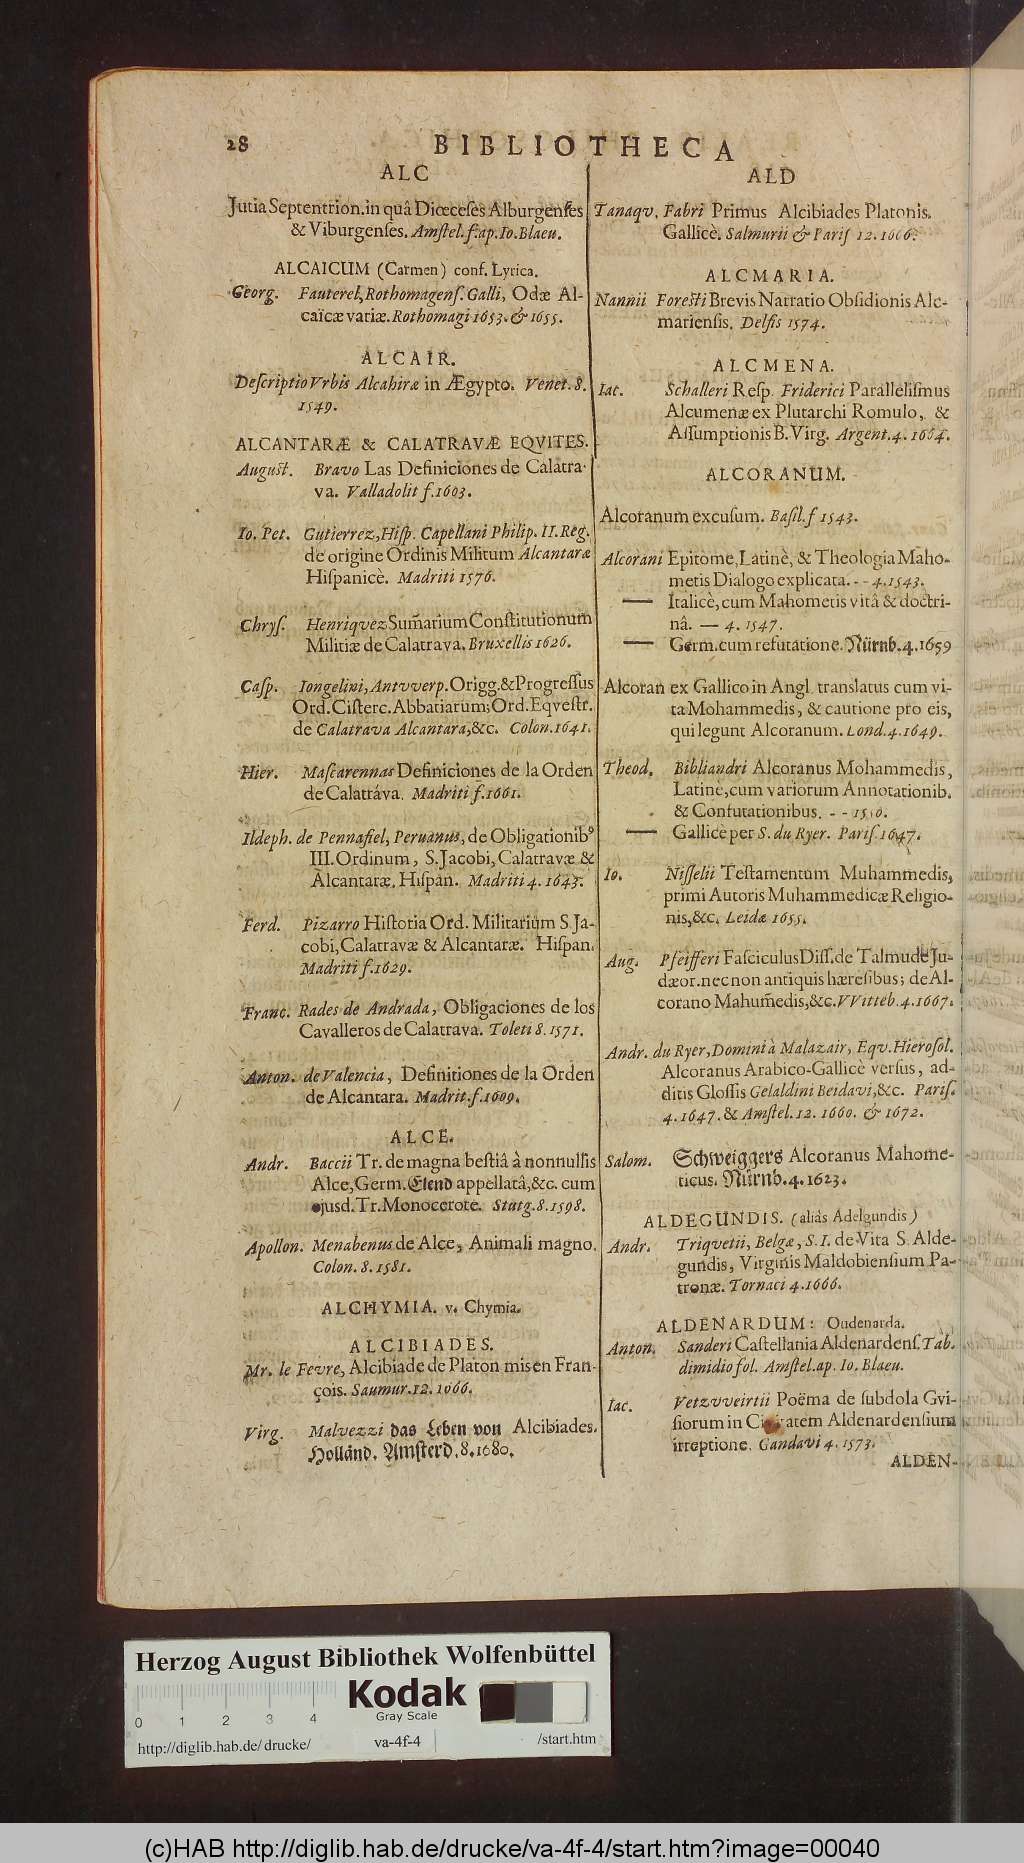 28
BIBLIOTHECA
ALC
Jutia Septentrion. in quâ Diœceſes Alburgenſes
& Viburgenſes. Amſtel. f. ap. Io. Blaeu.
ALCAICUM (Carmen) conf. Lyrica.
Georg. Fauterel, Rothomagenſ. Galli, Odæ Al-
caicæ variæ. Rothomagi 1653. & 1655.
ALCAIR.
Deſcriptio Vrbis Alcahiræ in Ægypto. Venet. 8.
1549.
ALCANTARÆ & CALATRAVÆ EQVITES.
Auguſt. Bravo Las Definiciones de Calatra-
va. Valladolit f. 1603.
Io. Pet. Gutierrez, Hiſp. Capellani Philip. II. Reg.
de origine Ordinis Militum Alcantaræ
Hiſpanicè. Madriti 1576.
Chryſ. Henriqvez Sum̃arium Conſtitutionum
Militiæ de Calatrava. Bruxellis 1626.
Caſp. Iongelini, Antvverp. Origg. & Progreſſus
Ord. Ciſterc. Abbatiarum; Ord. Eqveſtr.
de Calatrava Alcantara, &c. Colon. 1641.
Hier. Maſcarennas Definiciones de la Orden
de Calatráva. Madriti f. 1661.
Ildeph. de Pennafiel, Peruanus, de Obligationibꝰ
III. Ordinum, S. Jacobi, Calatravæ &
Alcantaræ, Hiſpan. Madriti 4. 1643.
Ferd. Pizarro Hiſtoria Ord. Militarium S. Ja-
cobi, Calatravæ & Alcantaræ. Hiſpan.
Madriti f. 1629.
Franc. Rades de Andrada, Obligaciones de los
Cavalleros de Calatrava. Toleti 8. 1571.
Anton. de Valencia, Definitiones de la Orden
de Alcantara. Madrit. f. 1609.
ALCE.
Andr. Baccii Tr. de magna beſtiâ à nonnullis
Alce, Germ. Elend appellatâ, &c. cum
ejusd. Tr. Monocerote. Stutg. 8. 1598.
Apollon. Menabenus de Alce, Animali magno.
Colon. 8. 1581.
ALCHYMIA. v. Chymia.
ALCIBIADES.
Mr. le Fevre, Alcibiade de Platon mis en Fran-
çois. Saumur. 12. 1666.
Virg. Malvezzi das Leben von Alcibiades.
Holländ. Amſterd. 8. 1680.
ALD
Tanaqv. Fabri Primus Alcibiades Platonis.
Gallicè. Salmurii & Pariſ 12. 1666.
ALCMARIA.
Nannii Foreſti Brevis Narratio Obſidionis Alc-
mariensis. Delfis 1574.
ALCMENA.
Iac. Schalleri Reſp. Friderici Paralleliſmus
Alcumenæ ex Plutarchi Romulo, &
Aſſumptionis B. Virg. Argent. 4. 1664.
ALCORANUM.
Alcoranum excuſum. Baſil. f 1543.
Alcorani Epitome, Latinè, & Theologia Maho-
metis Dialogo explicata. - - 4. 1543.
— Italicè, cum Mahometis vitâ & doctri-
nâ. — 4. 1547.
— Germ. cum refutatione. Nürnb. 4. 1659
Alcoran ex Gallico in Angl. translatus cum vi-
ta Mohammedis, & cautione pro eis,
qui legunt Alcoranum. Lond. 4. 1649.
Theod. Bibliandri Alcoranus Mohammedis,
Latinè, cum variorum Annotationib.
& Confutationibus. - - 1550.
— Gallicè per S. du Ryer. Pariſ. 1647.
Io. Niſſelii Teſtamentum Muhammedis,
primi Autoris Muhammedicæ Religio-
nis, &c. Leidæ 1655.
Aug. Pfeifferi Faſciculus Diſſ. de Talmude Ju-
dæor. nec non antiquis hæreſibus; de Al-
corano Mahum̃edis, &c. VVitteb. 4. 1667.
Andr. du Ryer, Domini à Malazair, Eqv. Hieroſol.
Alcoranus Arabico-Gallicè verſus, ad-
ditis Gloſſis Gelaldini Beidavi, &c. Pariſ.
4. 1647. & Amſtel. 12. 1660. & 1672.
Salom. Schweiggers Alcoranus Mahome-
ticus. Nürnb. 4. 1623.
ALDEGUNDIS. (aliàs Adelgundis)
Andr. Triqvetii, Belgæ, S. I. de Vita S. Alde-
gundis, Virginis Maldobienſium Pa-
tronæ. Tornaci 4. 1666.
ALDENARDUM: Oudenarda.
Anton. Sanderi Caſtellania Aldenardenſ. Tab.
dimidio fol. Amſtel. ap. Io. Blaeu.
Iac. Vetzvveirtii Poëma de ſubdola Gvi-
ſiorum in Civitatem Aldenardenſium
irreptione. Gandavi 4. 1573.
ALDEN-
Herzog August Bibliothek Wolfenbüttel
Kodak
Gray Scale
0 1 2 3 4
http://diglib.hab.de/drucke/ va-4f-4 /start.htm
(c)HAB http://diglib.hab.de/drucke/va-4f-4/start.htm?image=00040